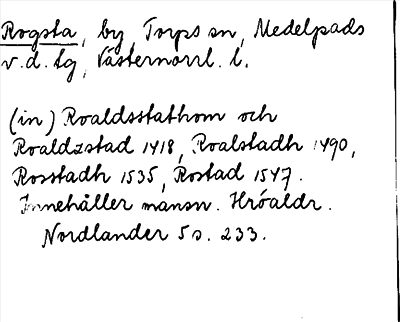 Rogsta, by, Torps sn, Medelpads
v. d. tg, Västernorrl. l.
(in) Roaldsstathom och
Roaldzstad 1418, Roalstadh 1490,
Rosstadh 1535, Rostad 1547.
Innehåller mansn. Hróaldr.
Nordlander 5 s. 233.